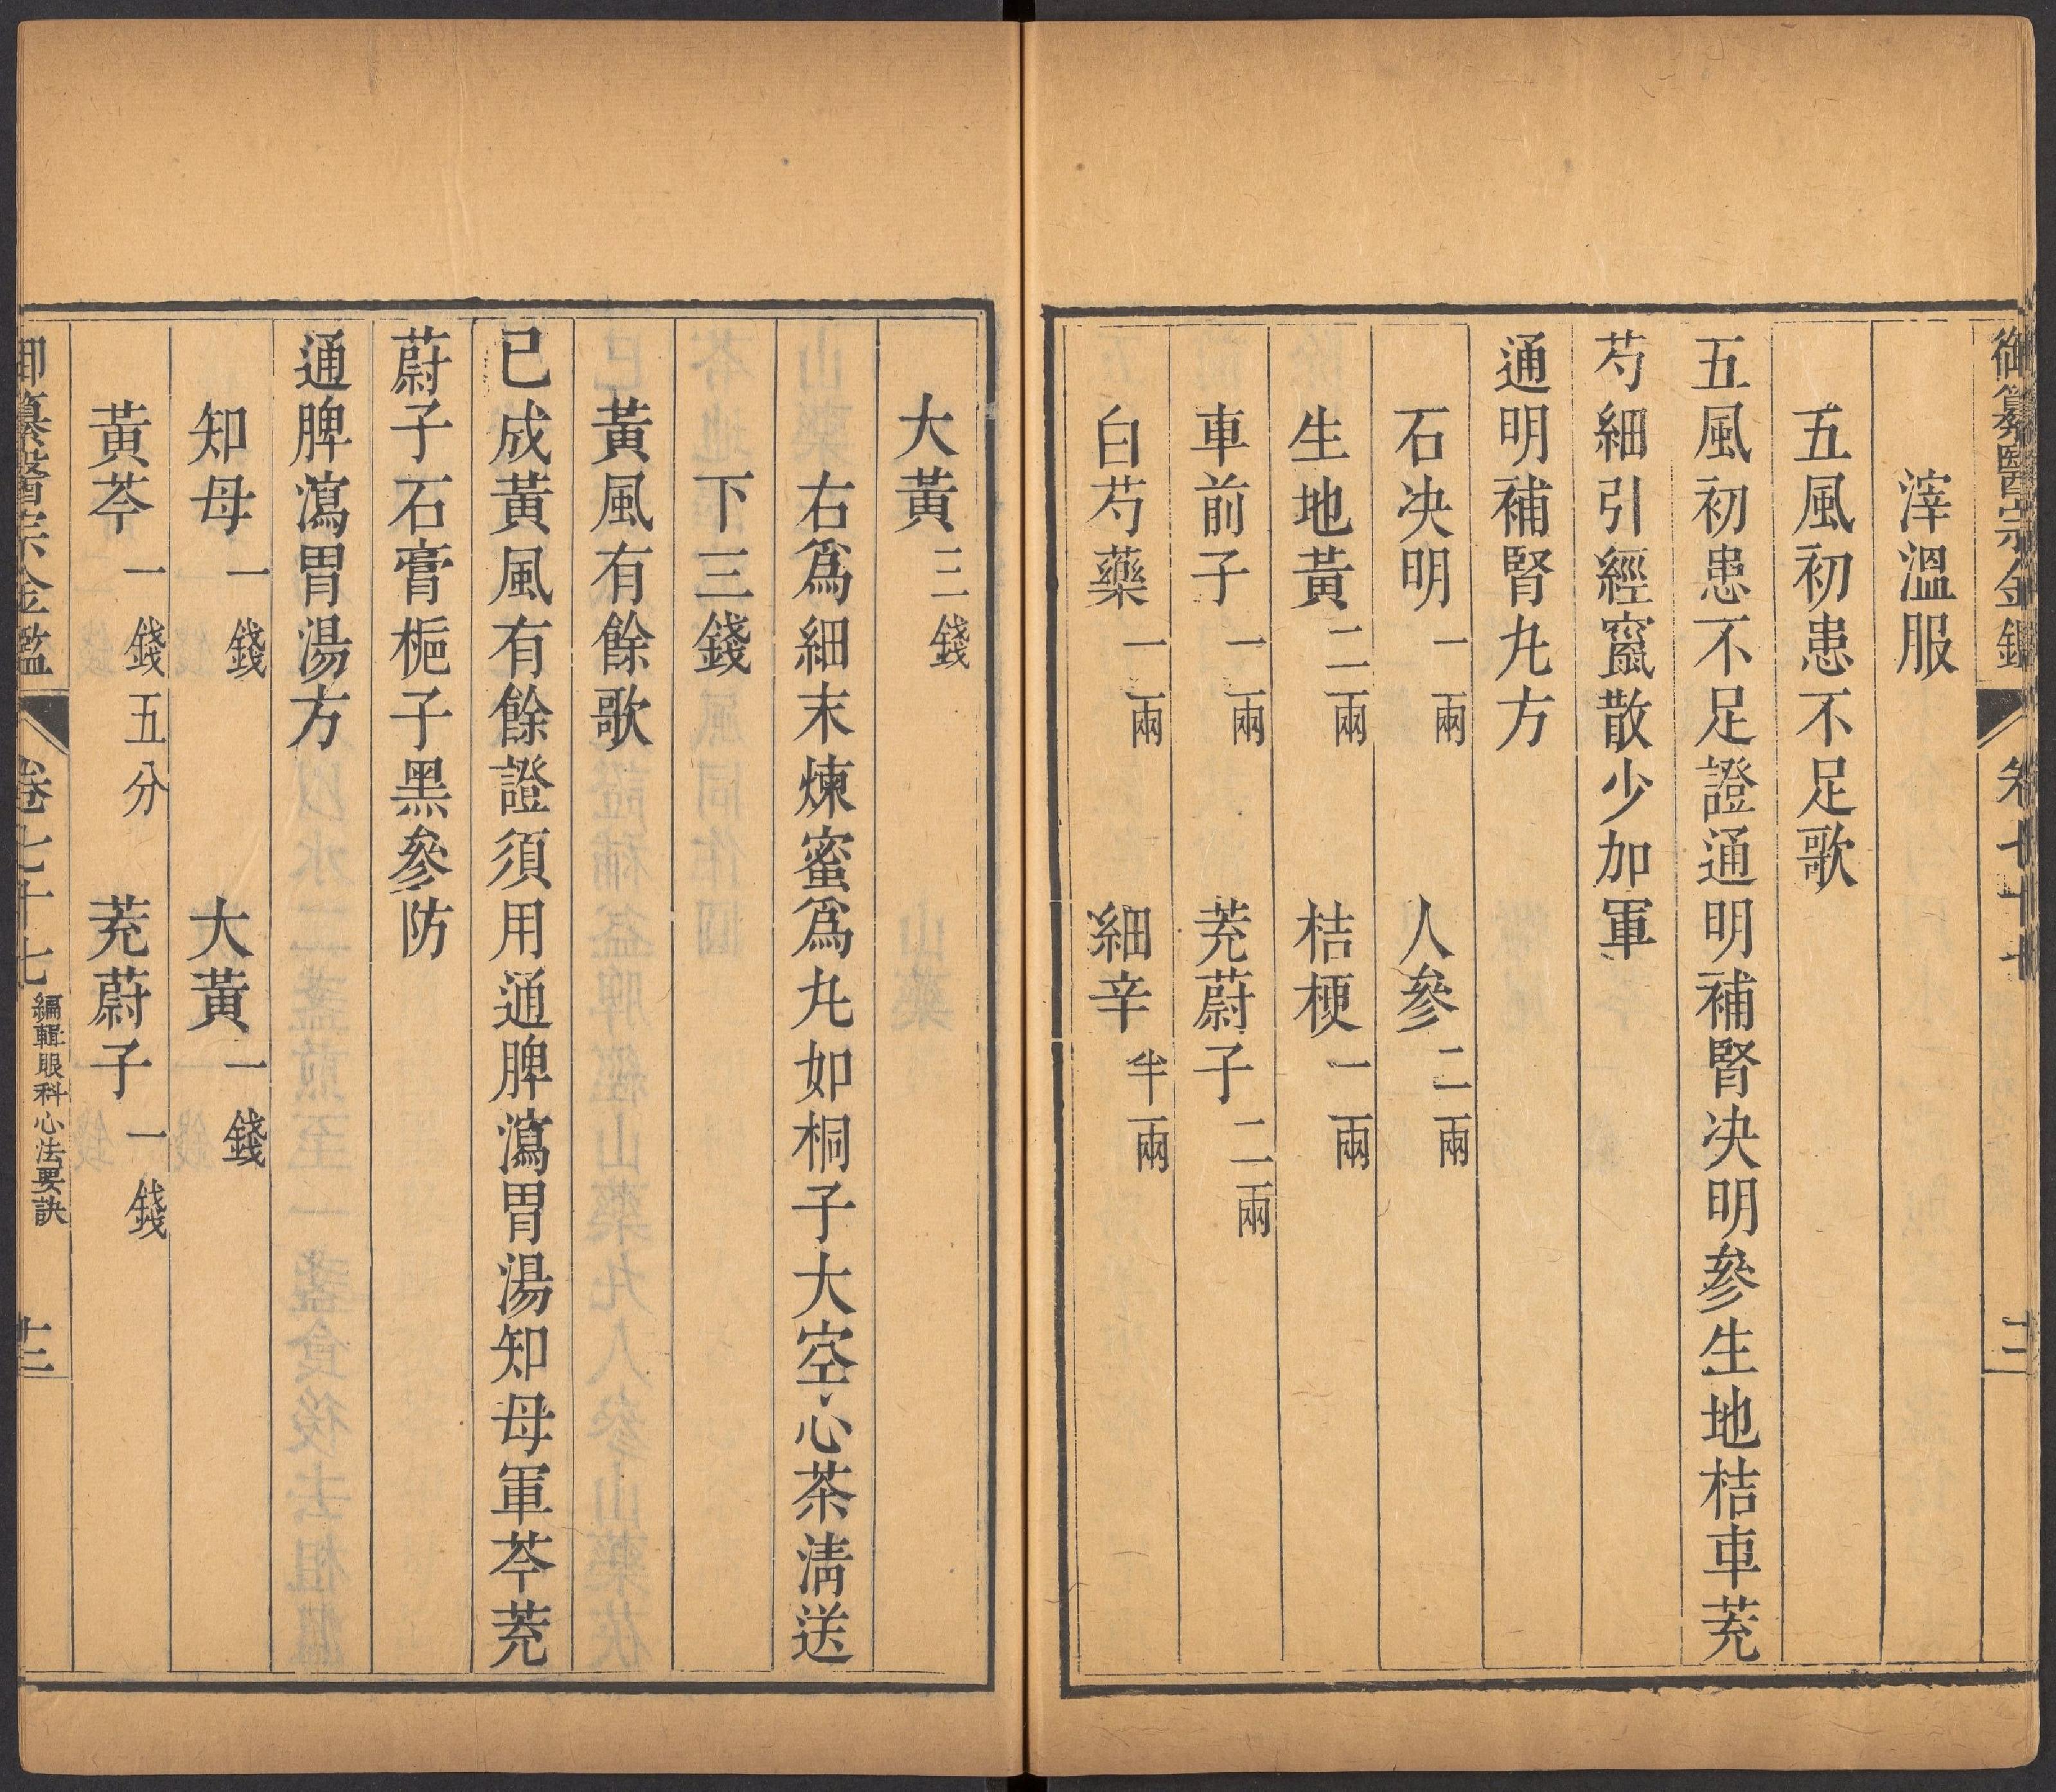 御纂醫宗金鑑 卷七十七 十二
滓溫服
五風初患不足歌
五風初患不足證通明補腎決明參生地桔車茺
芍細引經竄散少加軍
通明補腎丸方
石決明一兩 人參二兩
生地黃二兩 桔梗一兩
車前子一兩 茺蔚子二兩
白芍藥一兩 細辛半兩
大黃三錢
右爲細末煉蜜爲丸如桐子大空心茶清送
下三錢
黃風有餘歌
已成黃風有餘證須用通脾瀉胃湯知母軍芩茺
蔚子石膏梔子黑參防
通脾瀉胃湯方
知母一錢 大黃一錢
黃芩一錢五分 茺蔚子一錢
御纂醫宗金鑑 卷七十七 編輯眼科心法要訣 十三